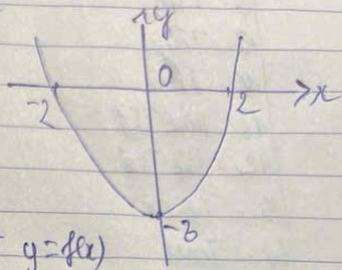 y
0
-2
2
x
-3
y=f(x)